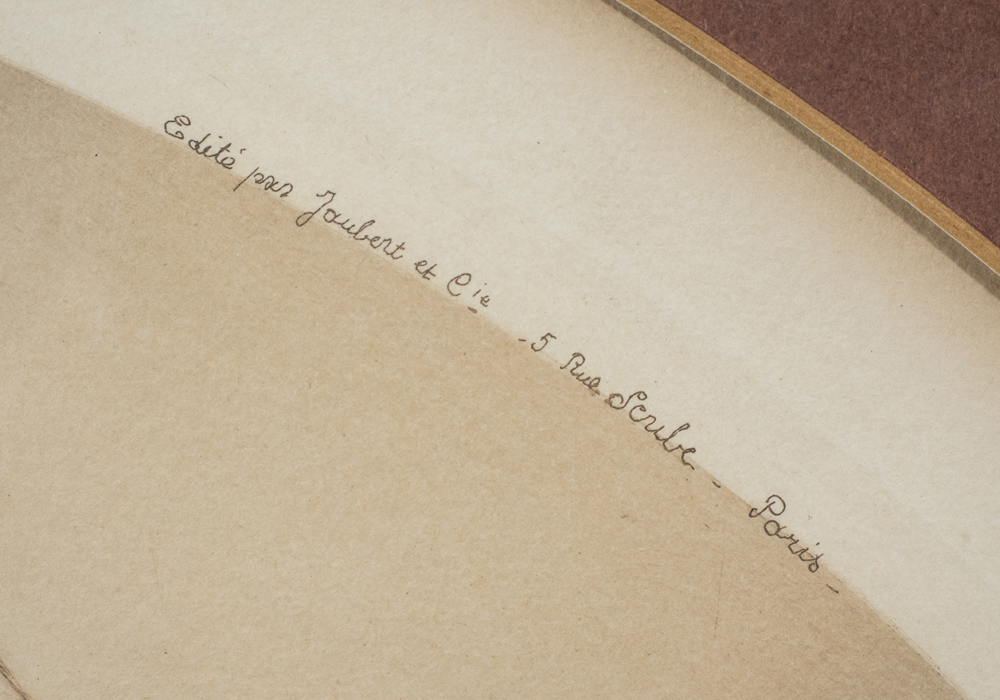 Edité par Jaubert et Cie - 5 Rue Scribe - Paris -